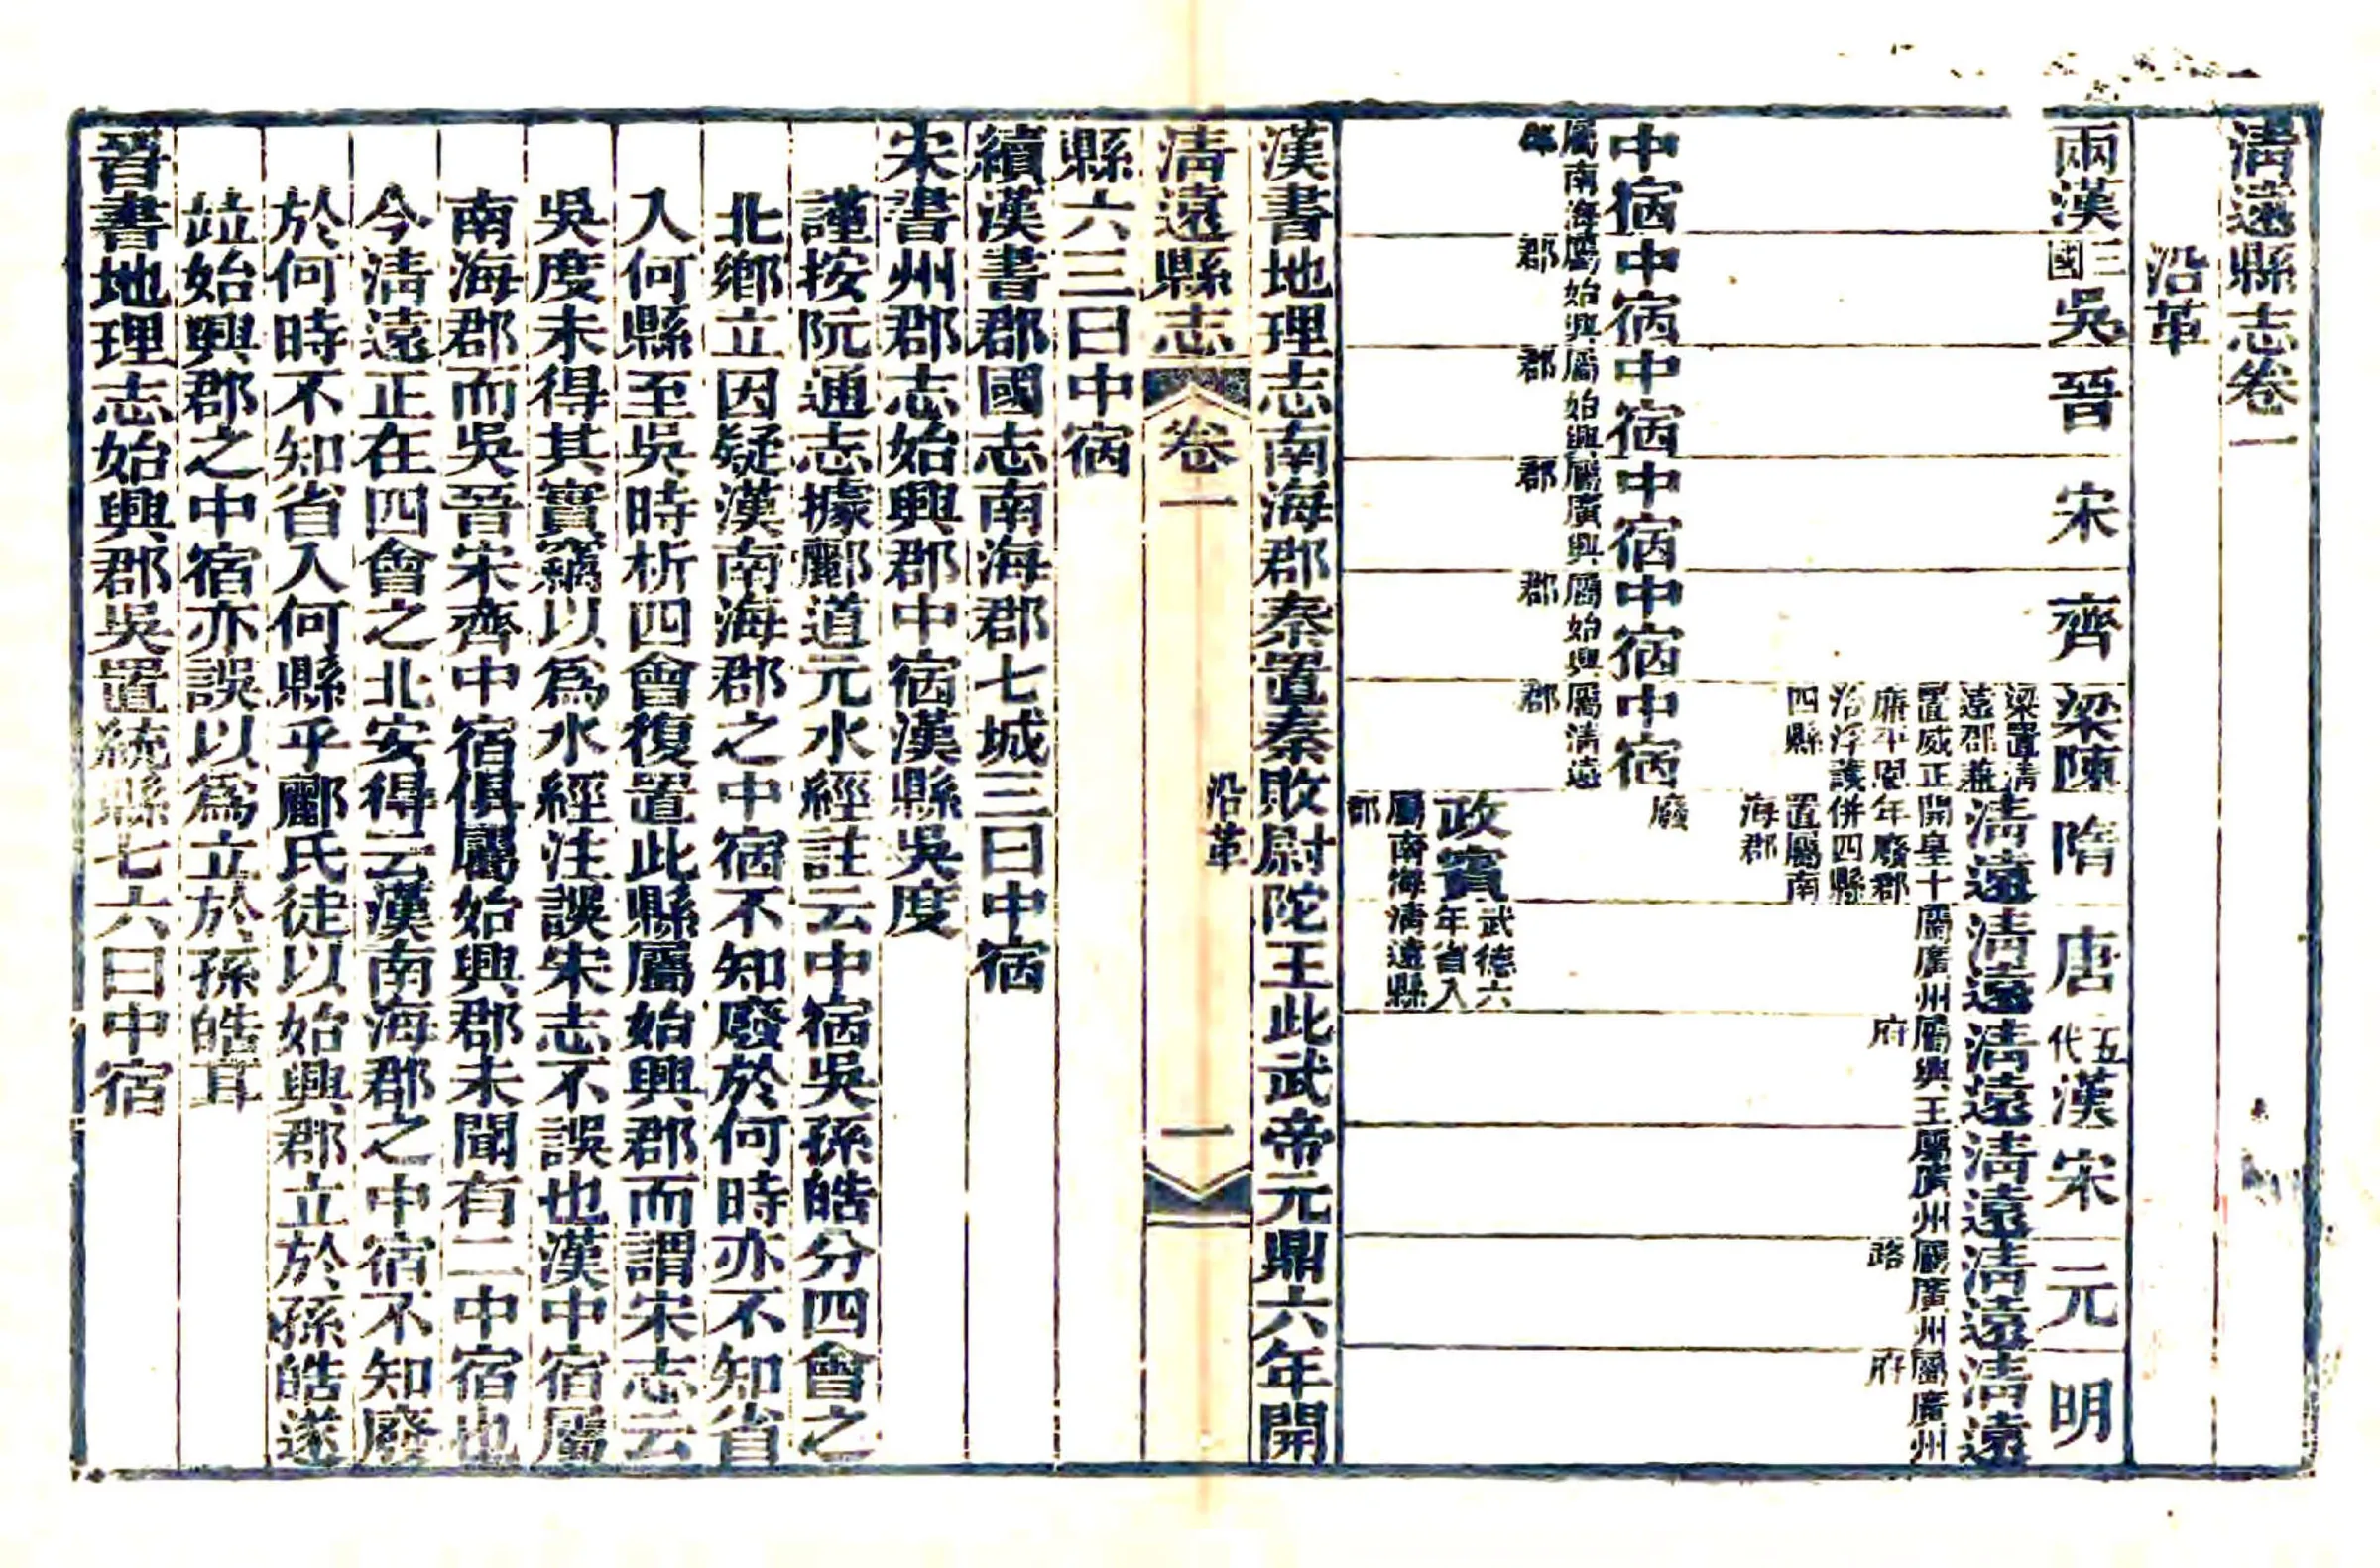 清遠縣志卷一
沿革
兩漢
三國吳
晉
宋
齊
梁陳
隋
唐
五代漢
宋
元
明
梁置清
遠郡兼
置威正
廉平恩
洽浮護
四縣
清遠
開皇十
年廢郡
併四縣
置屬南
海郡
清遠
屬廣州
清遠
屬興王
府
清遠
屬廣州
清遠
屬廣州
路
清遠
屬廣州
府
中宿
屬南海
郡
中宿
屬始興
郡
中宿
屬始興
郡
中宿
屬廣興
郡
中宿
屬始興
郡
中宿
屬清遠
郡
廢
政賓
屬南海
郡
武德六
年省入
清遠縣
漢書地理志南海郡秦置秦敗尉陀王此武帝元鼎六年開
清遠縣志
卷一
沿革
一
縣六三曰中宿
續漢書郡國志南海郡七城三曰中宿
宋書州郡志始興郡中宿漢縣吳度
謹按阮通志據酈道元水經註云中宿吳孫皓分四會之
北鄉立因疑漢南海郡之中宿不知廢於何時亦不知省
入何縣至吳時析四會復置此縣屬始興郡而謂宋志云
吳度未得其實竊以爲水經注誤宋志不誤也漢中宿屬
南海郡而吳晉宋齊中宿俱屬始興郡未聞有二中宿也
今清遠正在四會之北安得云漢南海郡之中宿不知廢
於何時不知省入何縣乎酈氏徒以始興郡立於孫皓遂
竝始興郡之中宿亦誤以爲立於孫皓耳
晉書地理志始興郡吳置統縣七六曰中宿